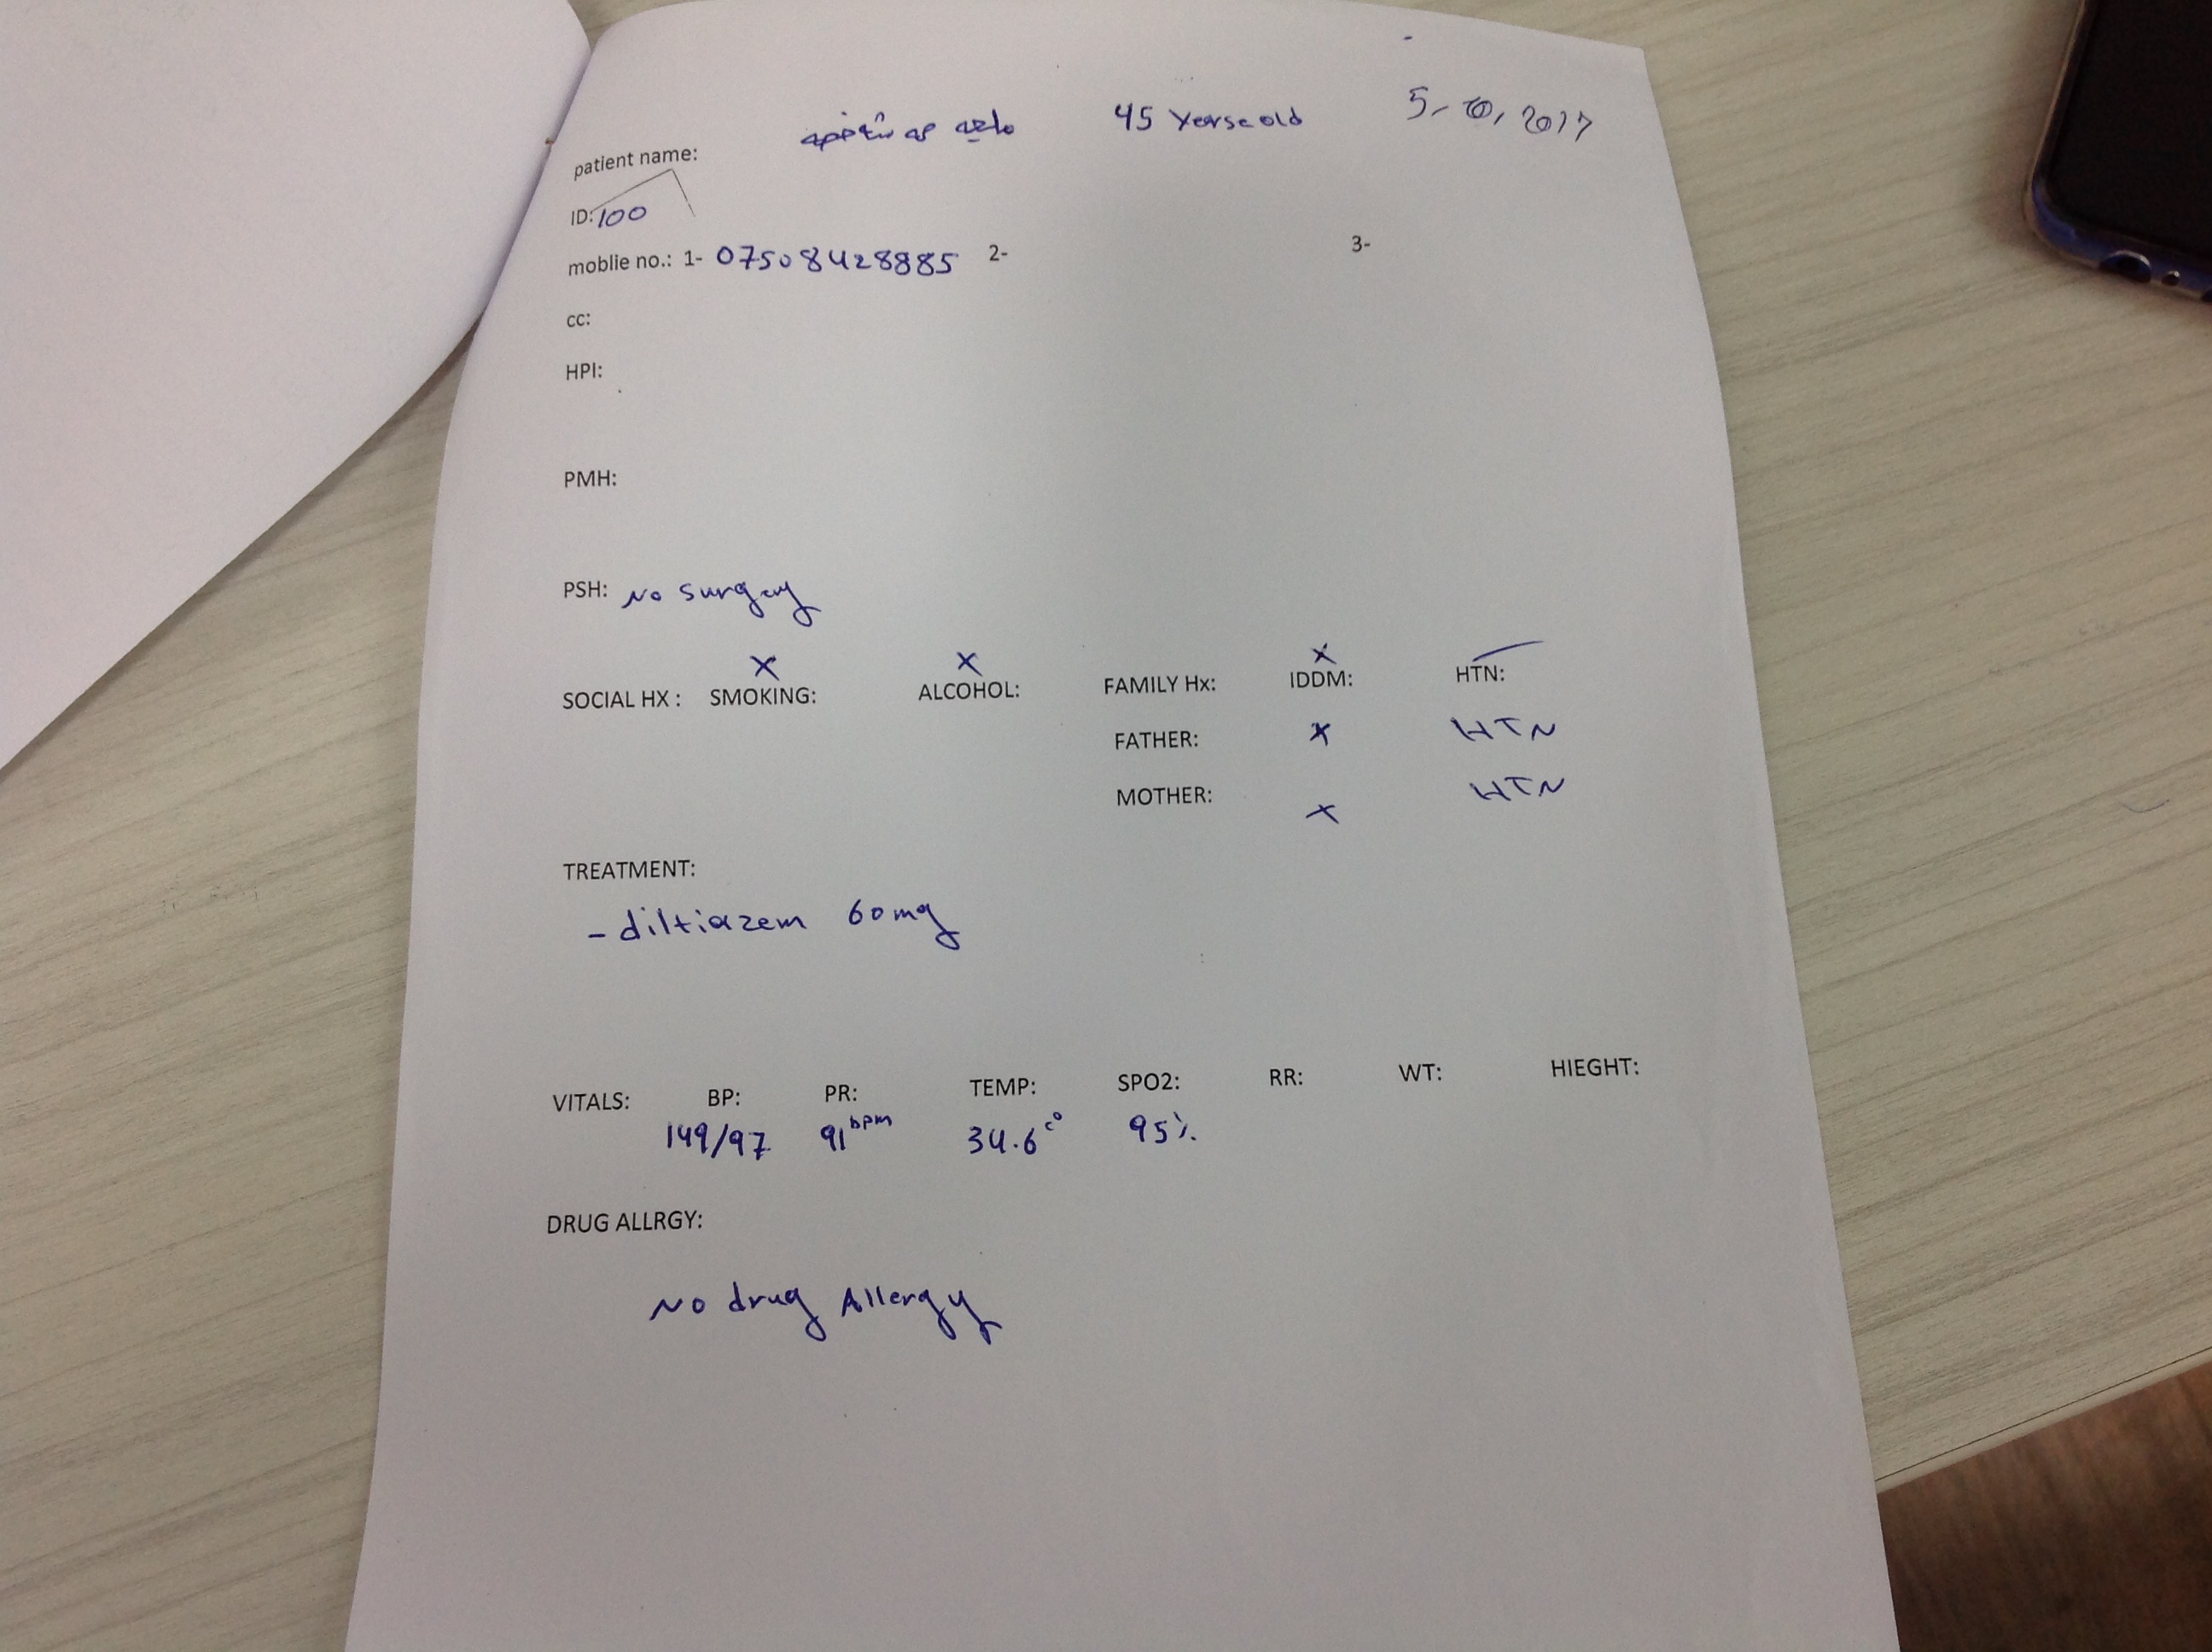 45 Yearse old 5- 10, 2017
patient name:
ID: 100
moblie no.: 1- 07508428885 2- 3-
cc:
HPI:
PMH:
PSH: No surgery
X X X
SOCIAL HX : SMOKING: ALCOHOL: FAMILY Hx: IDDM: HTN:
FATHER: X HTN
MOTHER: X HTN
TREATMENT:
- diltiazem 60mg
VITALS: BP: PR: TEMP: SPO2: RR: WT: HIEGHT:
149/97 91 bpm 34.6 c° 95%
DRUG ALLRGY:
No drug Allergy